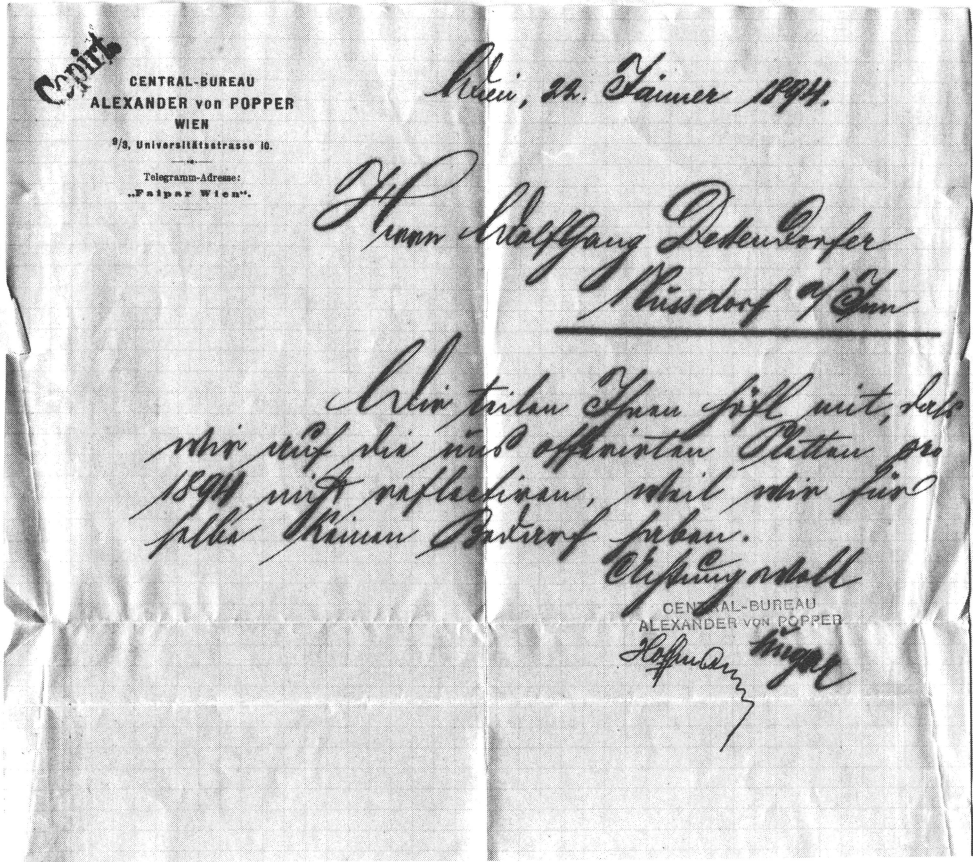 Copirt
CENTRAL-BUREAU
ALEXANDER von POPPER
WIEN
9/3, Universitätsstrasse 10.
Telegramm-Adresse:
„Falpar Wien“.
Wien, 22. Jänner 1894.
Herrn Wolfgang Dettendorfer
Nussdorf a/ Inn
Wir teilen Ihnen höfl mit, daß
wir auf die uns offerirten Pletten pro
1894 nicht reflectiren, weil wir für
selbe keinen Bedarf haben.
Achtungsvoll
CENTRAL-BUREAU
ALEXANDER VON POPPER
Hoffmann